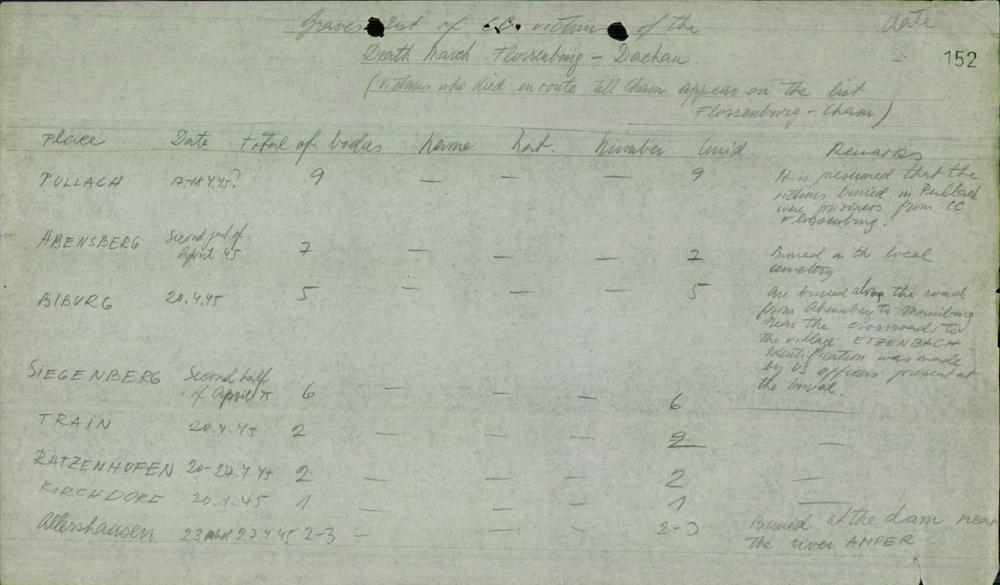 Graves list of CC. victims of the
date
Death march Flossenburg - Dachau.
152
(Victims who died en route till Cham appear on the list
Flossenburg - Cham)
Place Date total of bodies Name Nat. Number Unid. Remarks
PULLACH 17-18.4.45? 9 — — — 9 It is presumed that the
victims buried in Pullach
were prisoners from CC
Flossenburg.
ABENSBERG Second part of
April 45 7 — — — 7 Buried in the local
cemetery
BIBURG 20.4.45 5 — — — 5 are buried along the road
from Abensberg to
near the crossroads to
the village ETZENBACH
Identification was made
by US officers present at
the burial.
SIEGENBERG Second half
of April 45 6 — — — 6 —
TRAIN 20.4.45 2 — — — 2 —
RATZENHOFEN 20-27.4.45 2 — — — 2 —
KIRCHDORF 20.4.45 1 — — — 1 —
Allershausen 23 and 27.4.45 2-3 — — — 2-3 Buried at the dam near
the river AMPER